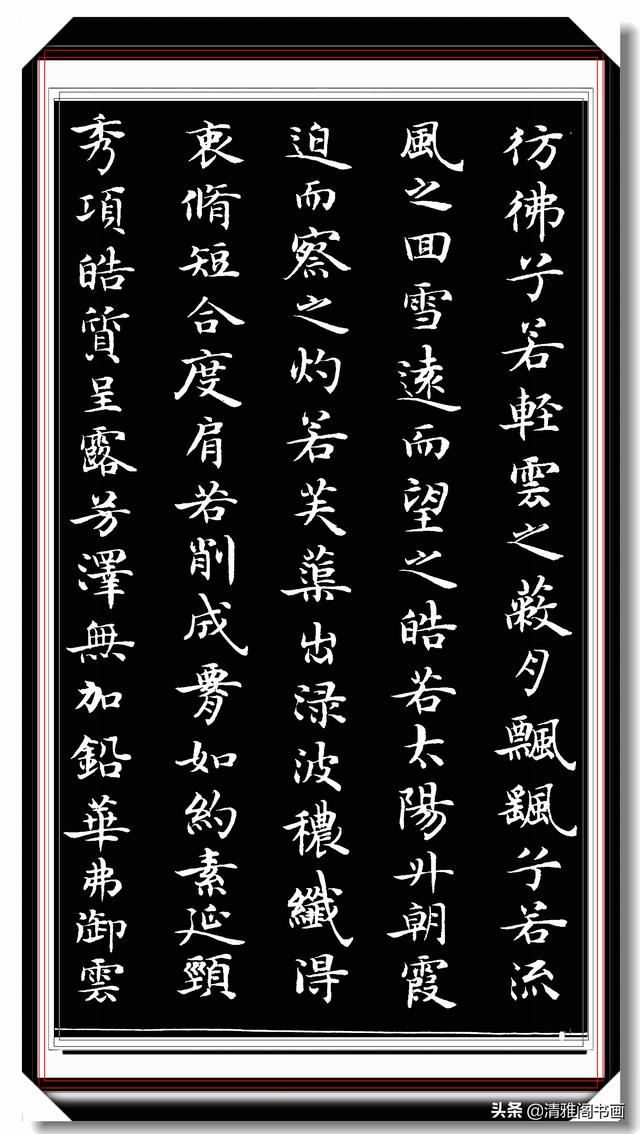 彷彿兮若輕雲之蔽月飄颻兮若流
風之回雪遠而望之皓若太陽升朝霞
迫而察之灼若芙蕖出渌波穠纖得
衷脩短合度肩若削成腰如約素延頸
秀項皓質呈露芳澤無加鉛華弗御雲
头条 @清雅阁书画